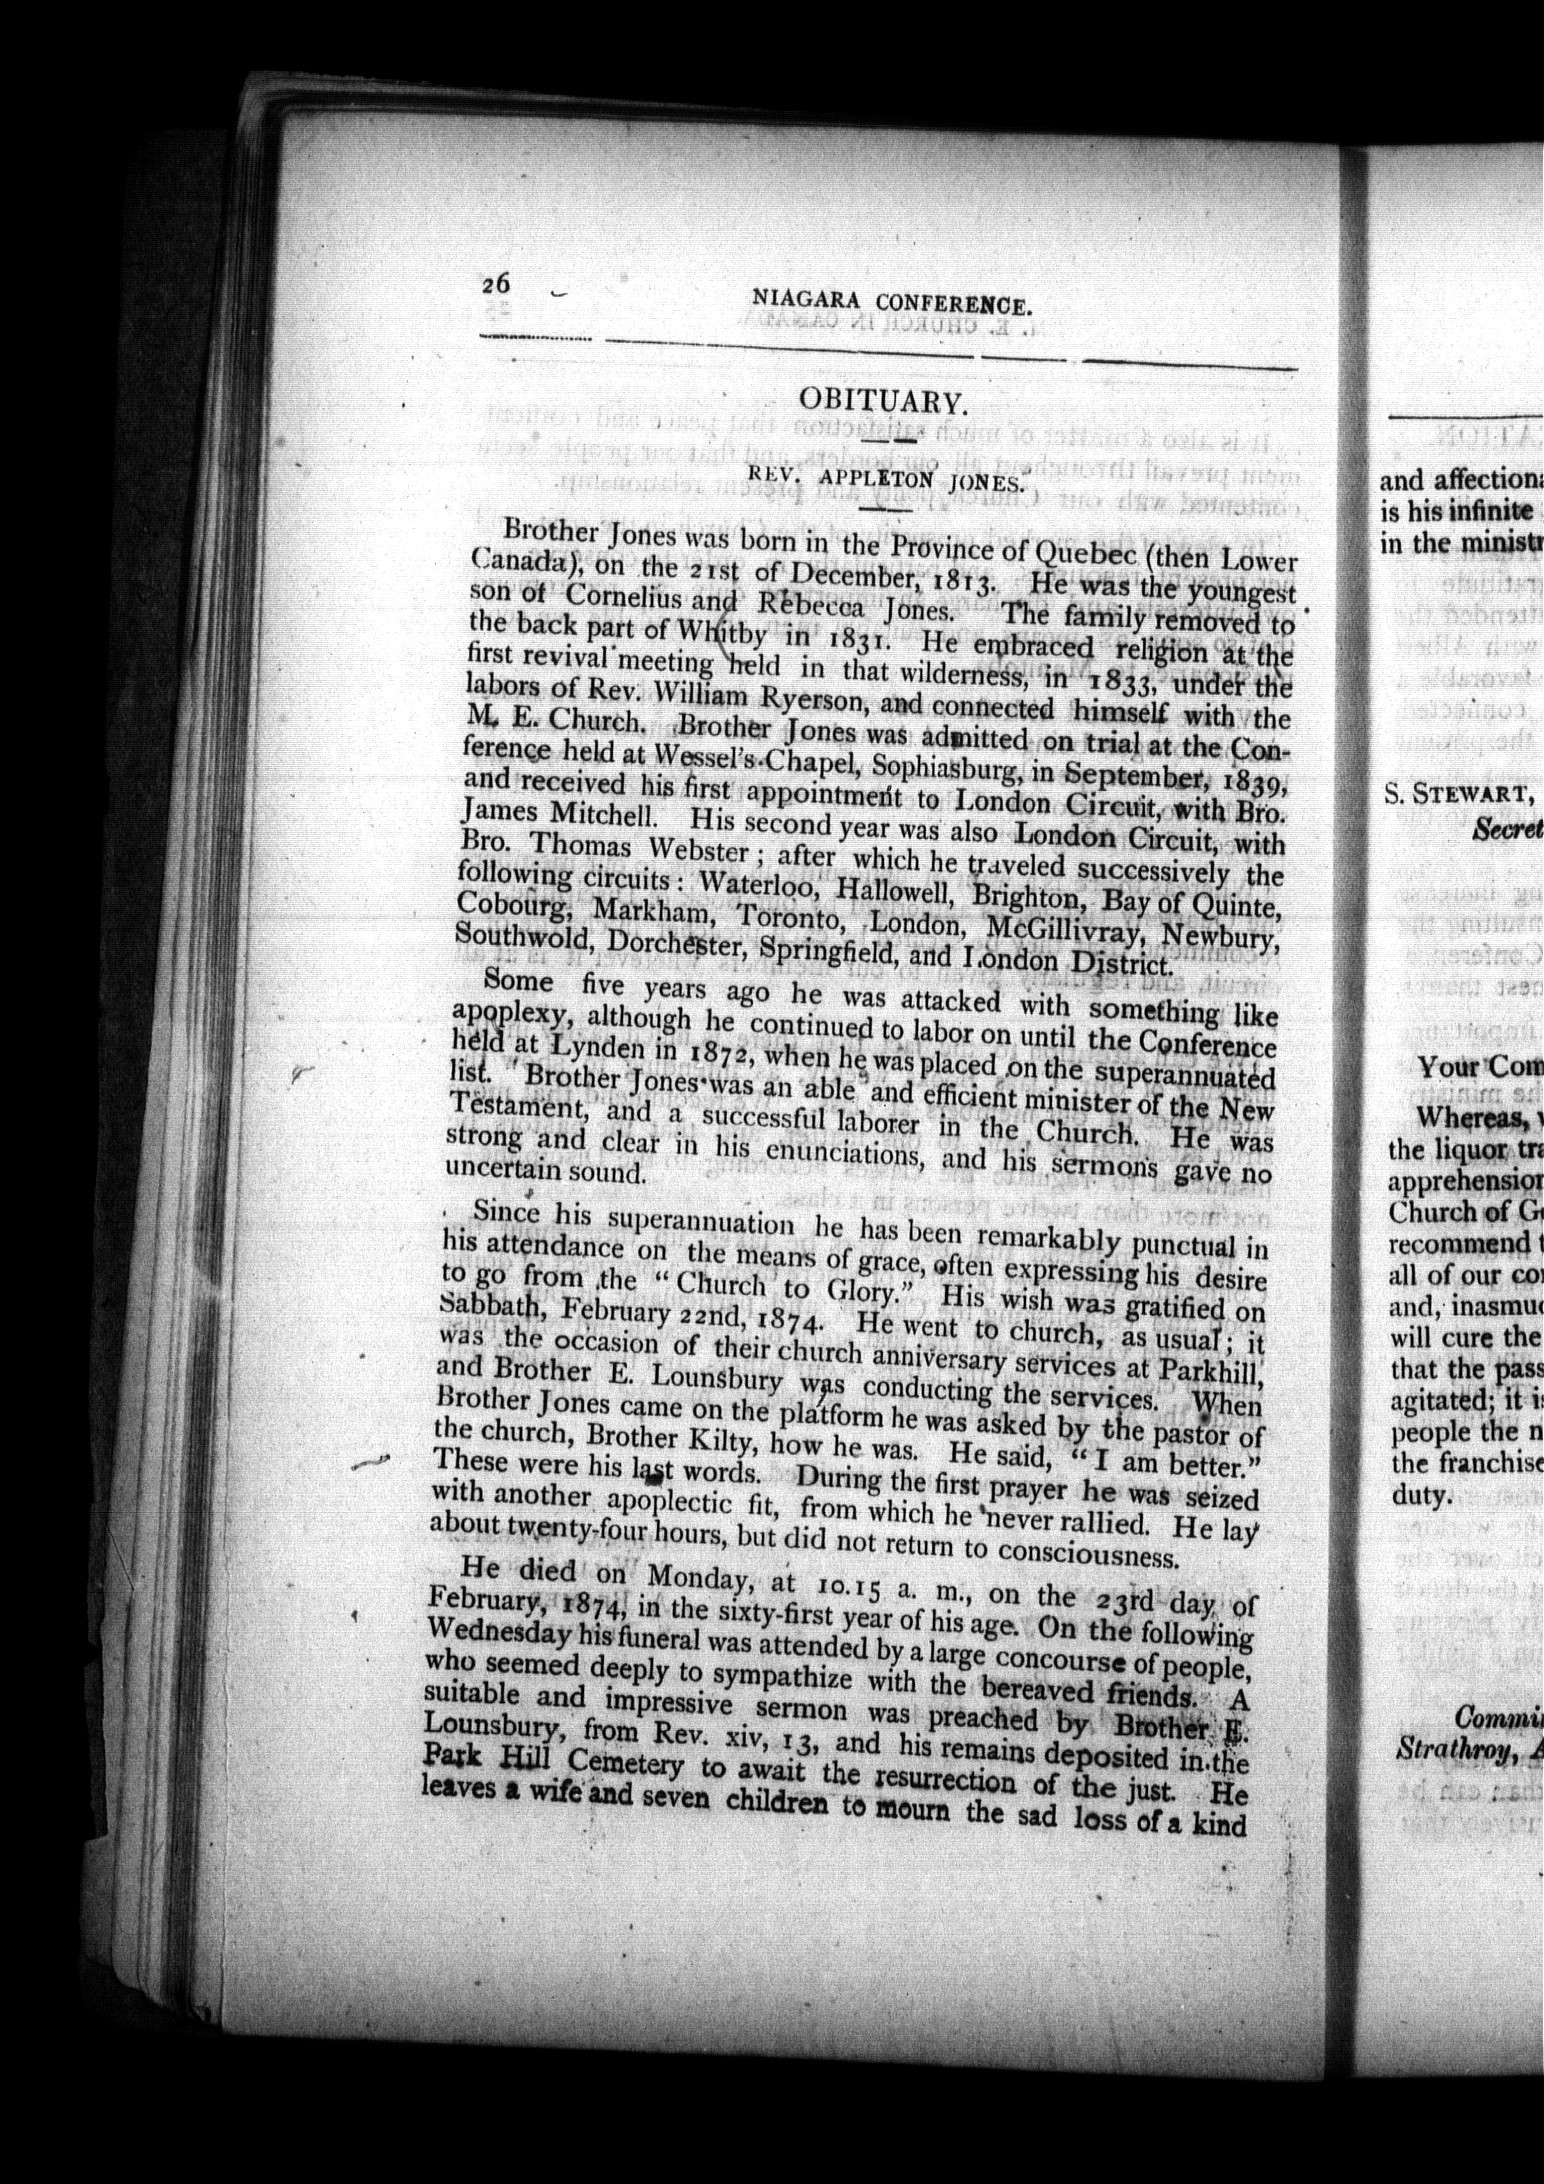 26
NIAGARA CONFERENCE.
OBITUARY.
REV. APPLETON JONES.
Brother Jones was born in the Province of Quebec (then Lower
Canada), on the 21st of December, 1813. He was the youngest
son of Cornelius and Rebecca Jones. The family removed to
the back part of Whitby in 1831. He embraced religion at the
first revival meeting held in that wilderness, in 1833, under the
labors of Rev. William Ryerson, and connected himself with the
M. E. Church. Brother Jones was admitted on trial at the Con-
ference held at Wessel's Chapel, Sophiasburg, in September, 1839,
and received his first appointment to London Circuit, with Bro.
James Mitchell. His second year was also London Circuit, with
Bro. Thomas Webster; after which he traveled successively the
following circuits: Waterloo, Hallowell, Brighton, Bay of Quinte,
Cobourg, Markham, Toronto, London, McGillivray, Newbury,
Southwold, Dorchester, Springfield, and London District.
Some five years ago he was attacked with something like
apoplexy, although he continued to labor on until the Conference
held at Lynden in 1872, when he was placed on the superannuated
list. Brother Jones was an able and efficient minister of the New
Testament, and a successful laborer in the Church. He was
strong and clear in his enunciations, and his sermons gave no
uncertain sound.
Since his superannuation he has been remarkably punctual in
his attendance on the means of grace, often expressing his desire
to go from the "Church to Glory." His wish was gratified on
Sabbath, February 22nd, 1874. He went to church, as usual; it
was the occasion of their church anniversary services at Parkhill,
and Brother E. Lounsbury was conducting the services. When
Brother Jones came on the platform he was asked by the pastor of
the church, Brother Kilty, how he was. He said, "I am better."
These were his last words. During the first prayer he was seized
with another apoplectic fit, from which he never rallied. He lay
about twenty-four hours, but did not return to consciousness.
He died on Monday, at 10.15 a. m., on the 23rd day of
February, 1874, in the sixty-first year of his age. On the following
Wednesday his funeral was attended by a large concourse of people,
who seemed deeply to sympathize with the bereaved friends. A
suitable and impressive sermon was preached by Brother E.
Lounsbury, from Rev. xiv, 13, and his remains deposited in the
Park Hill Cemetery to await the resurrection of the just. He
leaves a wife and seven children to mourn the sad loss of a kind
and
is his infinite
in the
S. STEWART,
Your
Whereas,
the liquor
Church of
recommend
all of our
and,
will cure the
that the
agitated; it
people the
the
duty.
Strathroy,